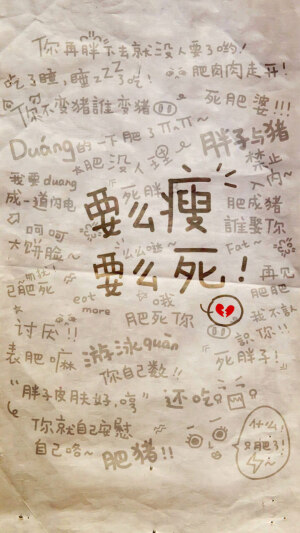 你再胖下去就没人要了哟!
吃了睡,睡zZZ了吃! 肥肉肉走开!
你不变猪誰变猪 死肥婆!!!
Duang的一下肥了 胖子与猪
禁止
入内~
肥没人理
我要duang
成一道闪电
死胖
肥成猪
誰娶你
要么瘦
呵呵
大饼脸~
Fat~
要么死!
再见
已肥死
eat
more
哦
肥死你
我不認
識你!!
讨厌!!
表肥嘛 游泳quan
你自己数!!
死胖子!
“胖子皮肤好,哼” 还吃
你就自己安慰
自己咯~
肥猪!!
什么!
又肥了!